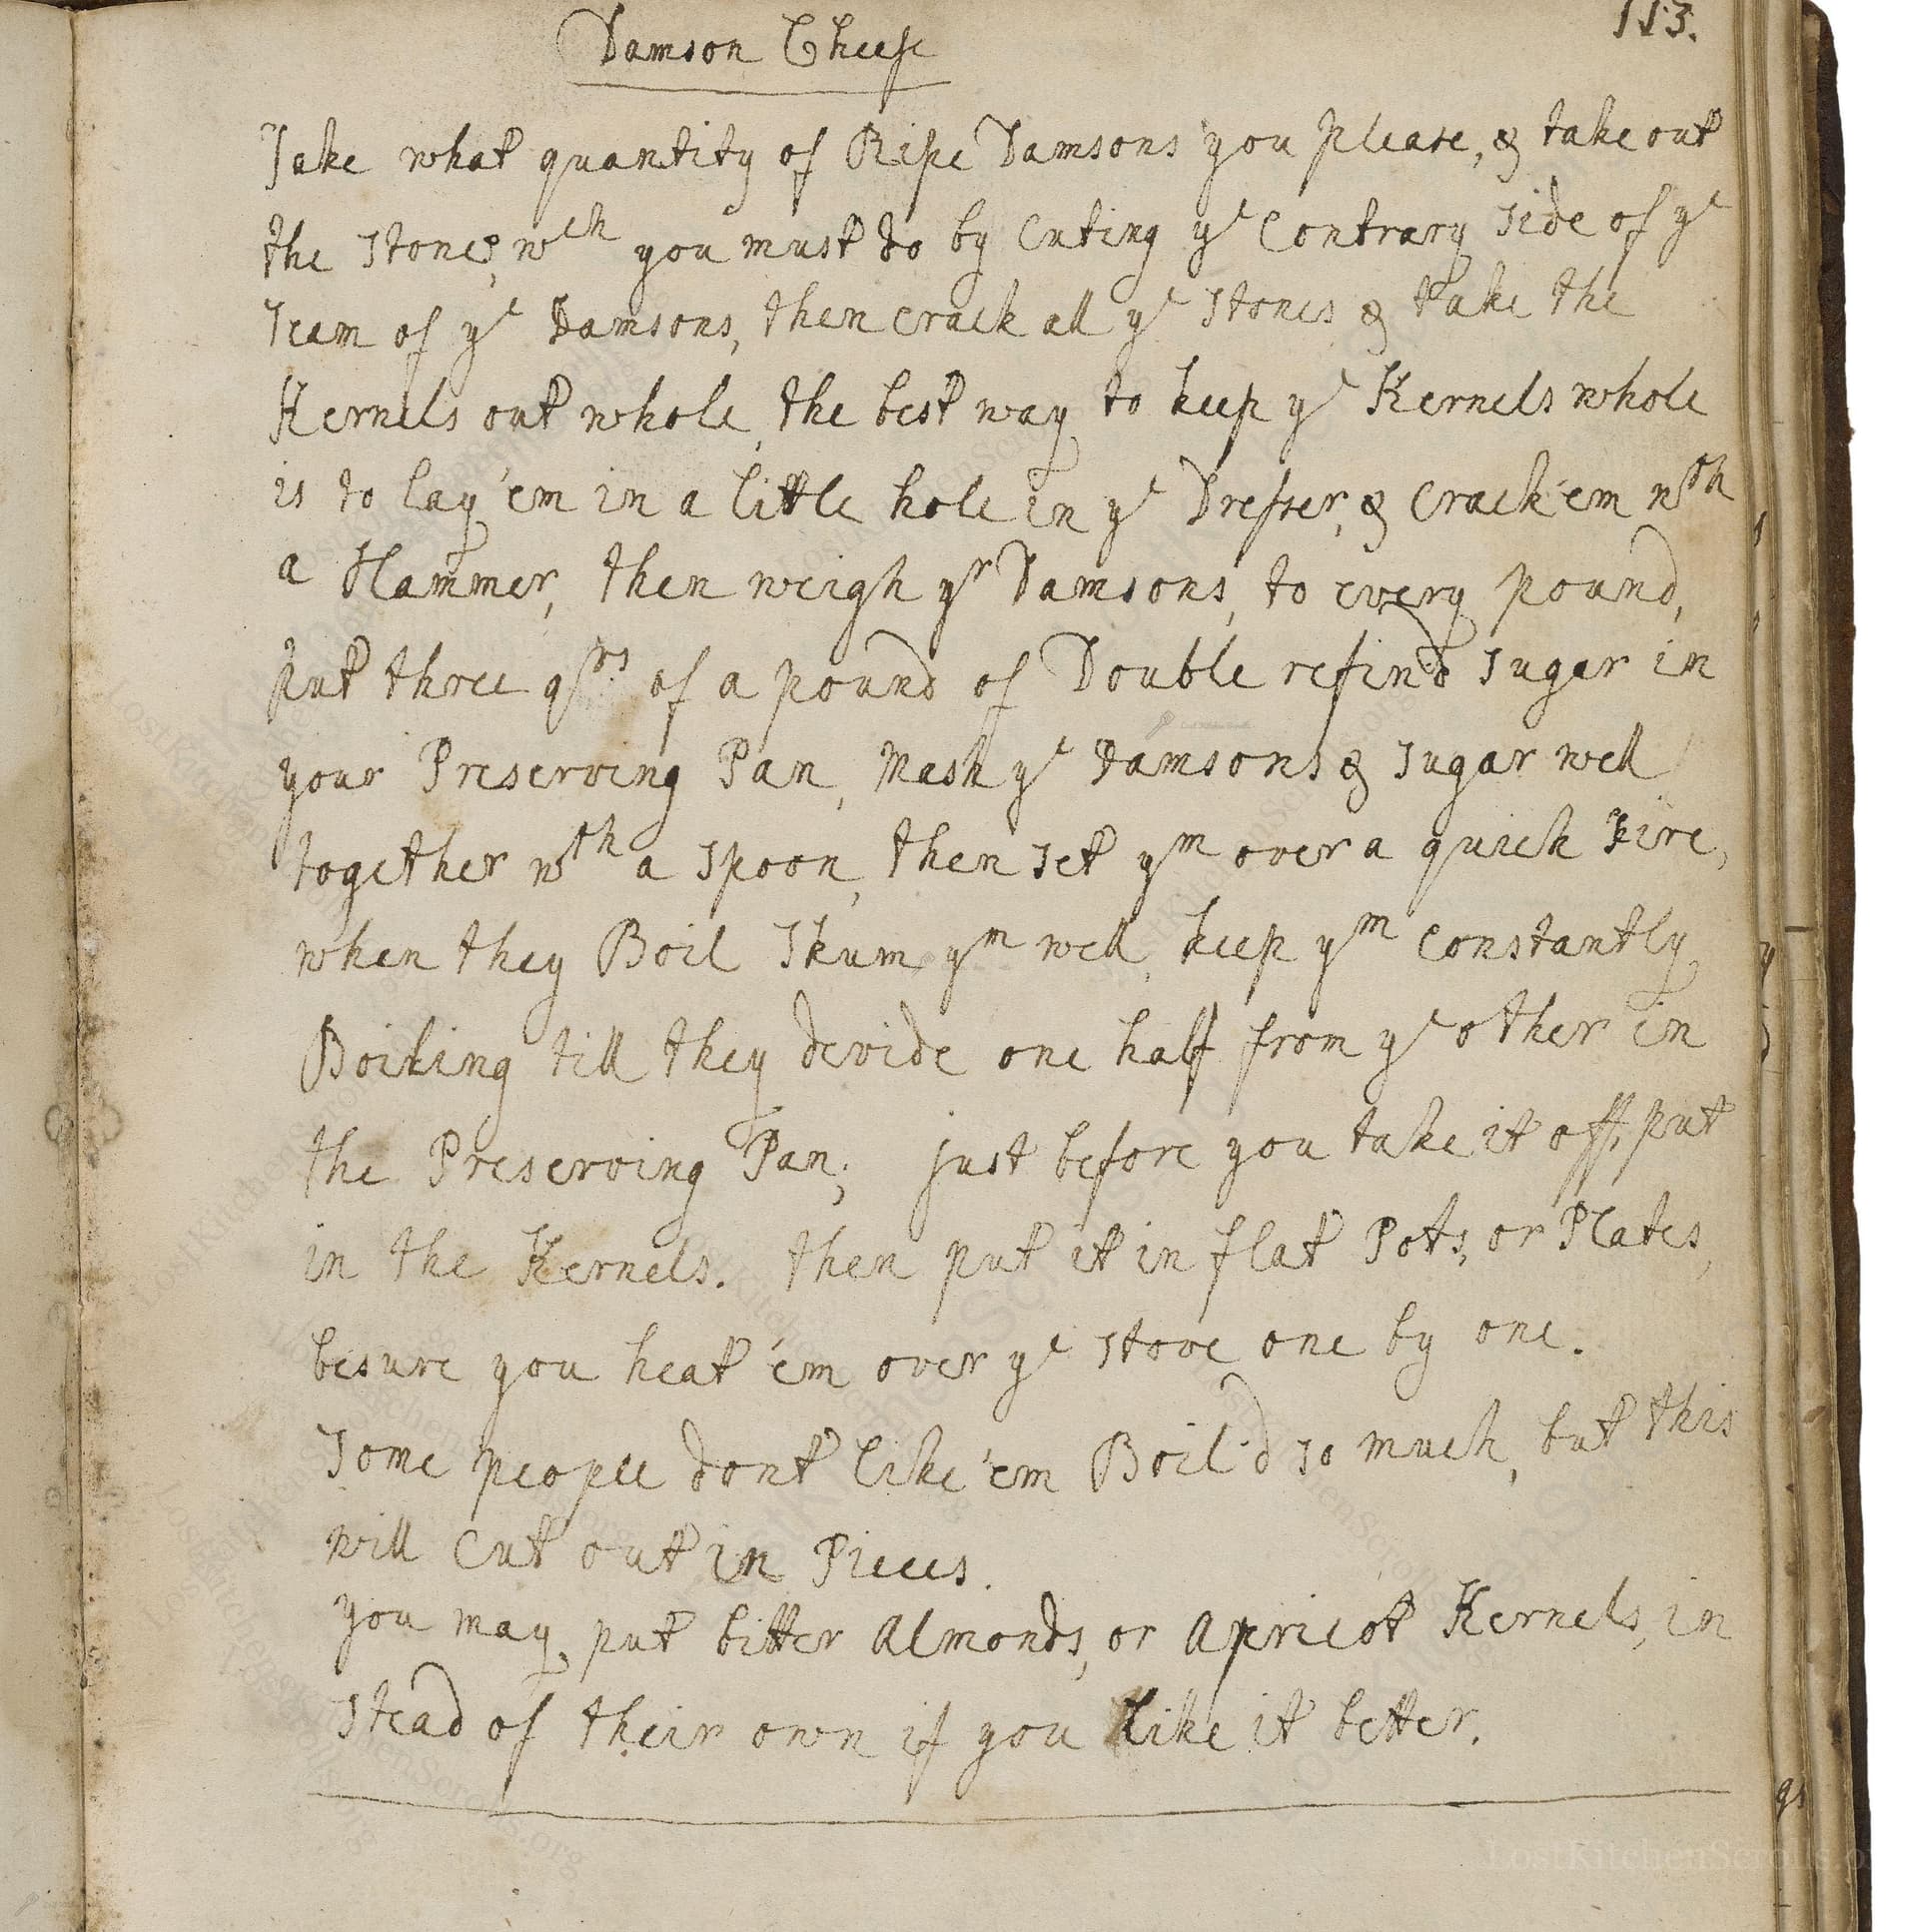 113.
Damson Cheese
Take what quantity of Ripe Damsons you please, & take out
the Stones, wch you must do by Cuting ye Contrary side of ye
Seam of ye Damsons, then crack all ye Stones & take the
Kernels out whole, the best way to keep ye Kernels whole
is to lay 'em in a little hole in ye Dresser, & Crack 'em wth
a Hammer, then weigh yr Damsons, to every pound,
put three qrs. of a pound of Double refin'd Sugar in
your Preserving Pan, Mash ye Damsons & Sugar well
together wth a Spoon, then set ym over a quick Fire,
when they Boil Skum ym well, keep ym constantly
Boiling till they devide one half from ye other in
the Preserving Pan; just before you take it off, put
in the Kernels. then put it in flat Pots, or Plates,
besure you heat 'em over ye Stove one by one.
Some people dont like 'em Boil'd so much, but this
will Cut out in Pieces.
you may, put bitter Almonds, or Apricot Kernels, in
stead of their own if you like it better.
LostKitchenScrolls.o